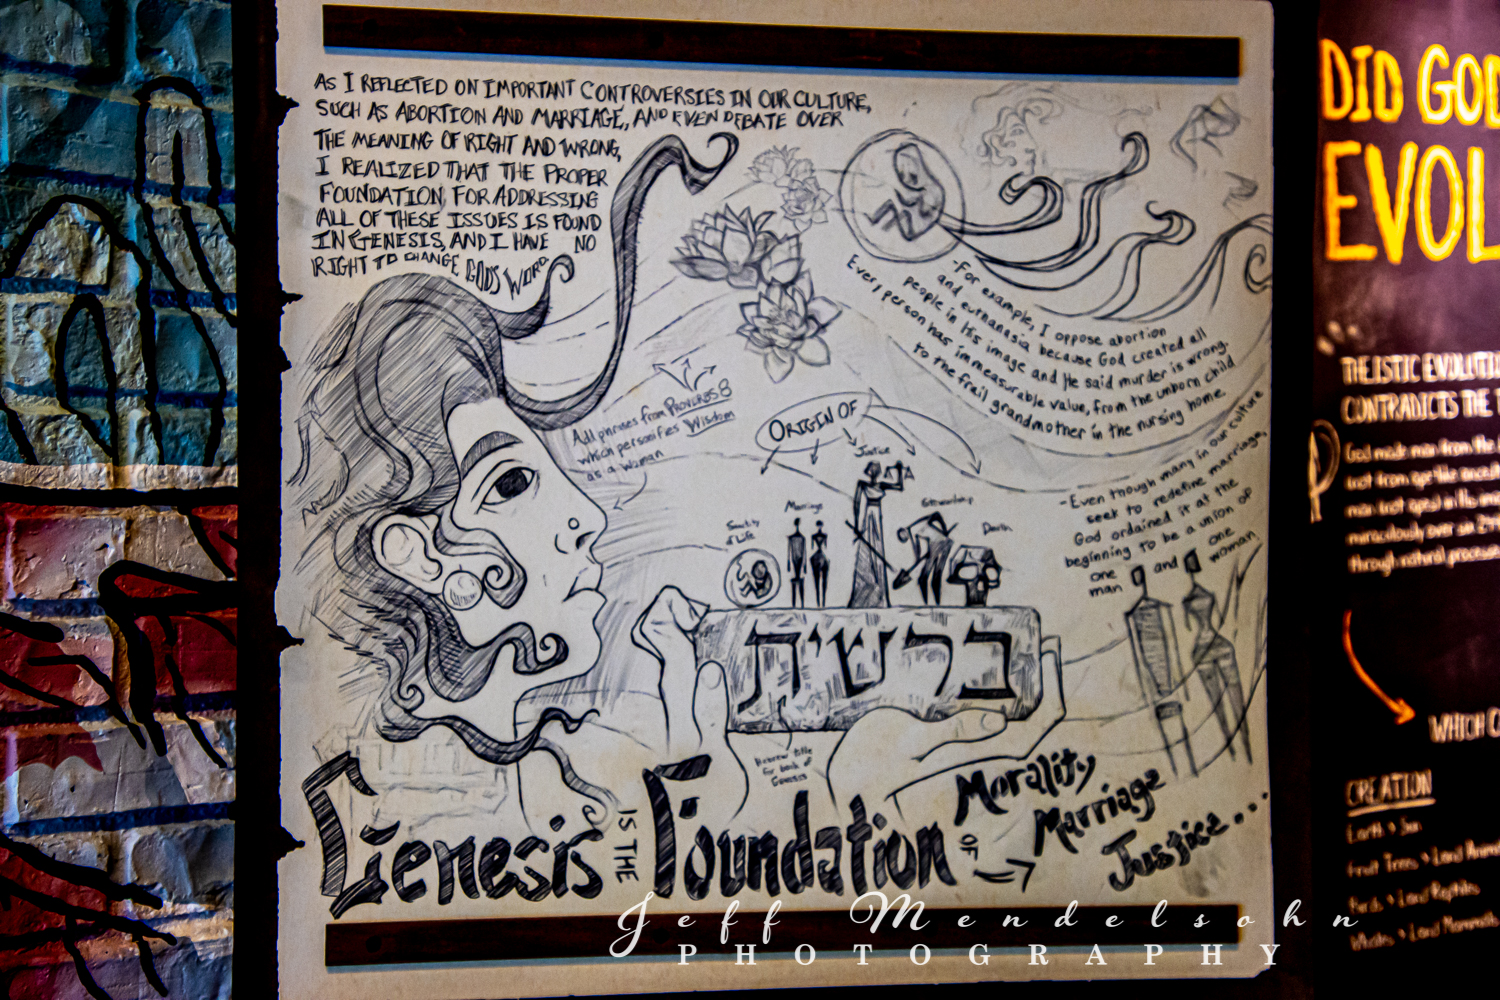 AS I REFLECTED ON IMPORTANT CONTROVERSIES IN OUR CULTURE,
SUCH AS ABORTION AND MARRIAGE, AND EVEN DEBATE OVER
THE MEANING OF RIGHT AND WRONG,
I REALIZED THAT THE PROPER
FOUNDATION FOR ADDRESSING
ALL OF THESE ISSUES IS FOUND
IN GENESIS, AND I HAVE NO
RIGHT TO CHANGE GODS WORD
-For example, I oppose abortion
and euthanasia because God created all
people in His image and He said murder is wrong.
Every person has immeasurable value, from the unborn child
to the frail grandmother in the nursing home.
All phrases from PROVERBS 8
which personifies Wisdom
as a woman
ORIGIN OF
Sanctity
of Life
Marriage
Justice
Stewardship
Death
-Even though many in our culture
seek to redefine marriage,
God ordained it at the
beginning to be a union of
one man and one woman
ברשית
Hebrew title
for book of
Genesis
Genesis IS THE Foundation OF
Morality
Marriage
Justice...
DID GOD
EVOL
THEISTIC EVOLUTIO
CONTRADICTS THE
God made man from the
through natural
WHICH C
CREATION
Earth → Sun
Fruit Trees → Land
Birds → Land Reptiles
Whales → Land Mammals
Jeff Mendelsohn
PHOTOGRAPHY